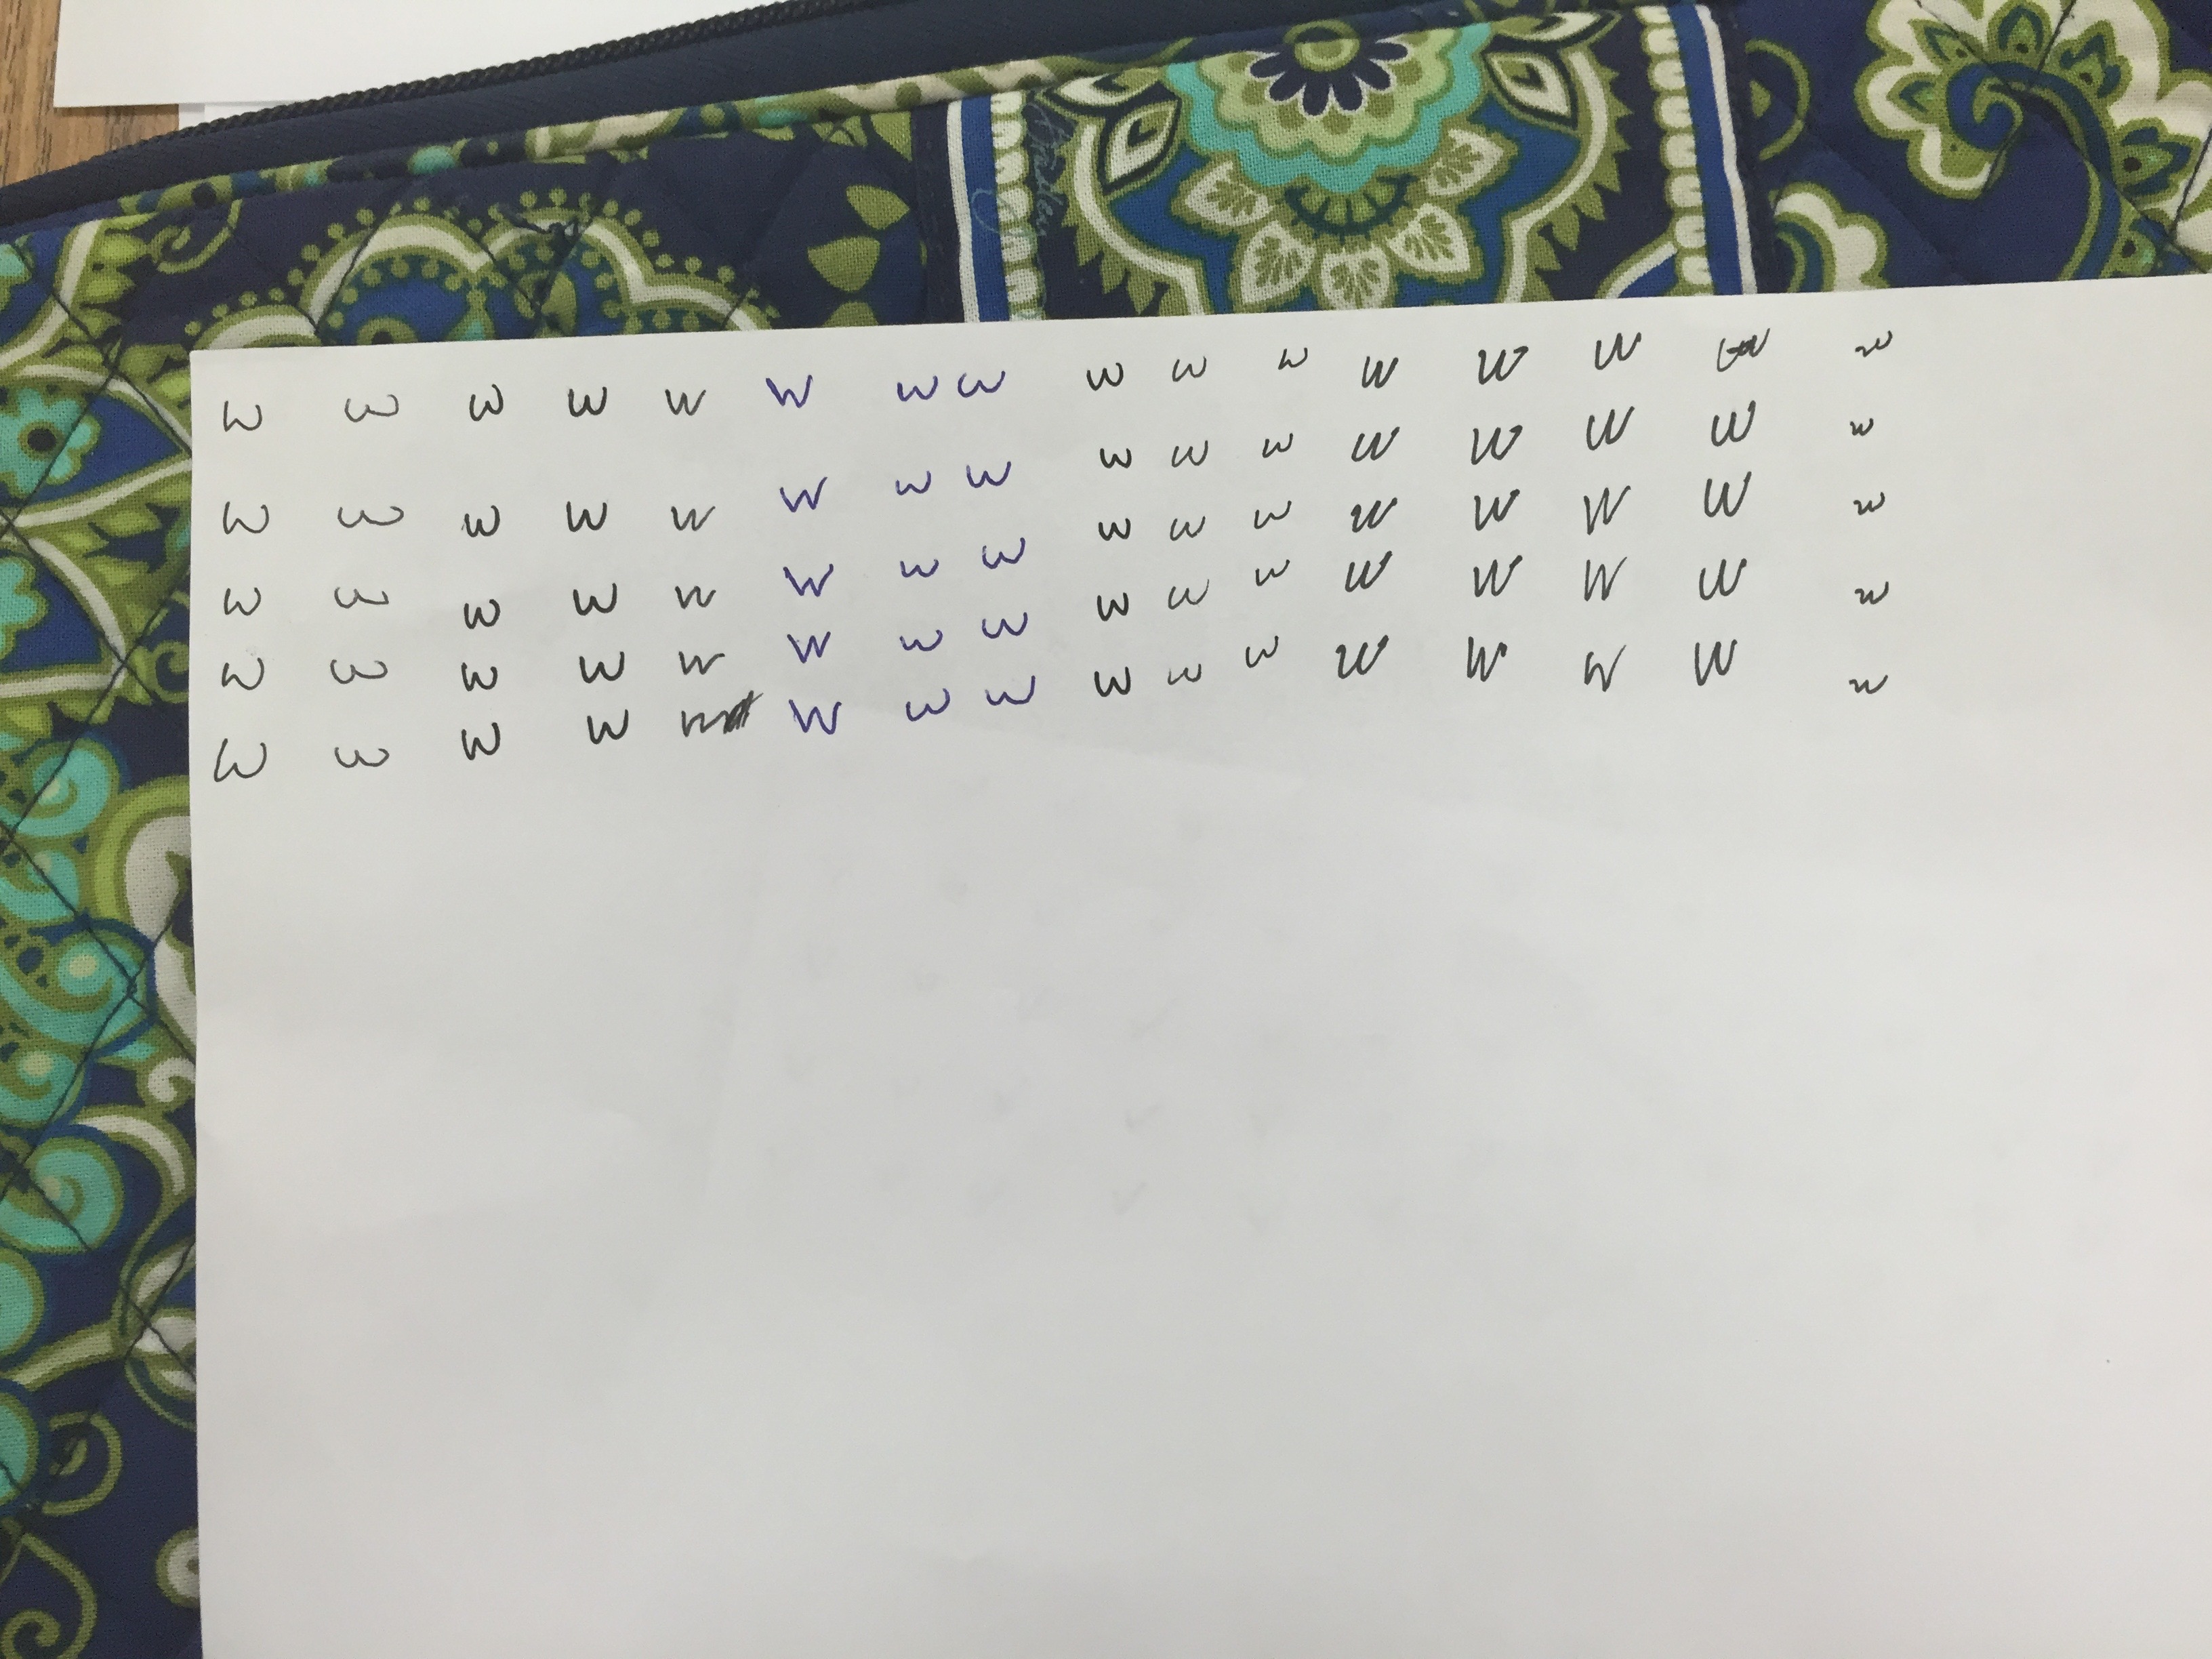 w w w w w w w w w w w w w w w w
w w w w w w w w w w w w w w w w
w w w w w w w w w w w w w w w w
w w w w w w w w w w w w w w w w
w w w w w w w w w w w w w w w w